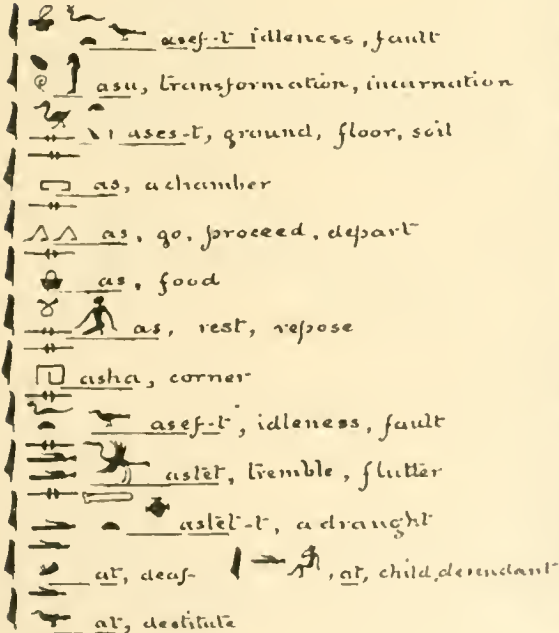 asef-t idleness, fault
asu, transformation, incarnation
ases-t, ground, floor, soil
as, a chamber
as, go, proceed, depart
as, food
as, rest, repose
asha, corner
asef-t, idleness, fault
astet, tremble, flutter
astet-t, a draught
at, deaf- , at, child, desendant
at, destitute